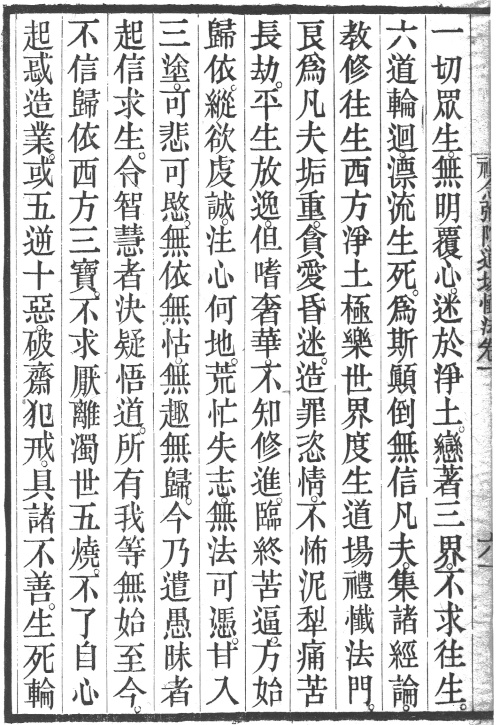 一切眾生。無明覆心。迷於淨土。戀著三界。不求往生。
六道輪迴。漂流生死。為斯顛倒無信凡夫。集諸經論。
教修往生西方淨土極樂世界度生道場禮懺法門。
良為凡夫垢重。貪愛昏迷。造罪恣情。不怖泥犁痛苦
長劫。平生放逸。但嗜奢華。不知修進。臨終苦逼。方始
歸依。縱欲虔誠。注心何地。荒忙失志。無法可憑。甘入
三塗。可悲可愍。無依無怙。無趣無歸。今乃遣愚昧者
起信求生。令智慧者決疑悟道。所有我等無始至今。
不信歸依西方三寶。不求厭離濁世五燒。不了自心
起惑造業。或五逆十惡。破齋犯戒。具諸不善。生死輪